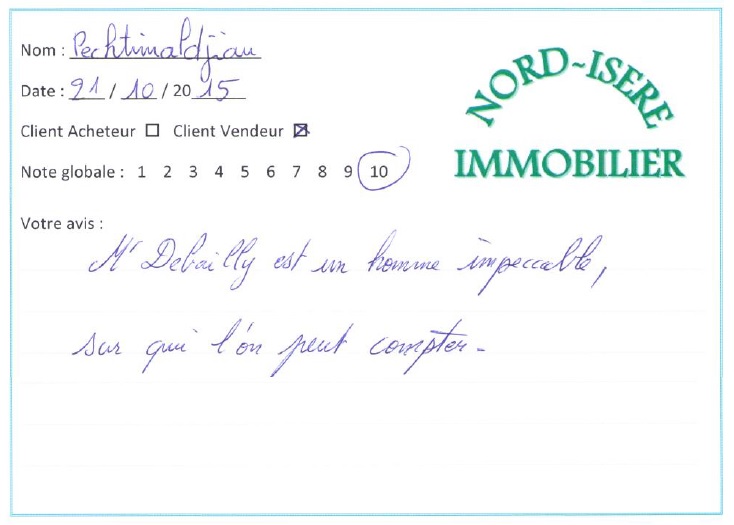 Nom : Pechtimaldjian
Date : 21 / 10 / 20 15
Client Acheteur ☐ Client Vendeur ☒
Note globale : 1 2 3 4 5 6 7 8 9 10
NORD-ISERE
IMMOBILIER
Votre avis :
Mr Debailly est un homme impeccable,
sur qui l'on peut compter.